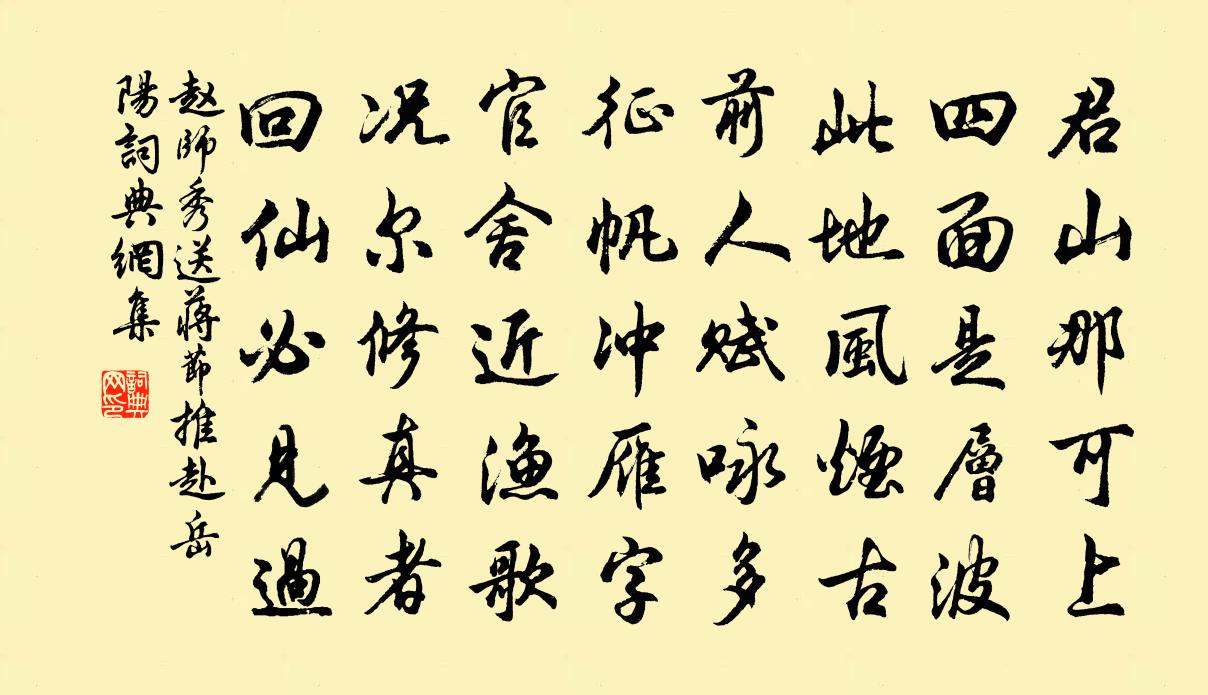 君山那可上
四面是層波
此地風煙古
前人賦咏多
征帆冲雁字
官舍近漁歌
况尔修真者
回仙必見過
赵師秀送蒋節推赴岳
陽詞典網集
詞典
网印